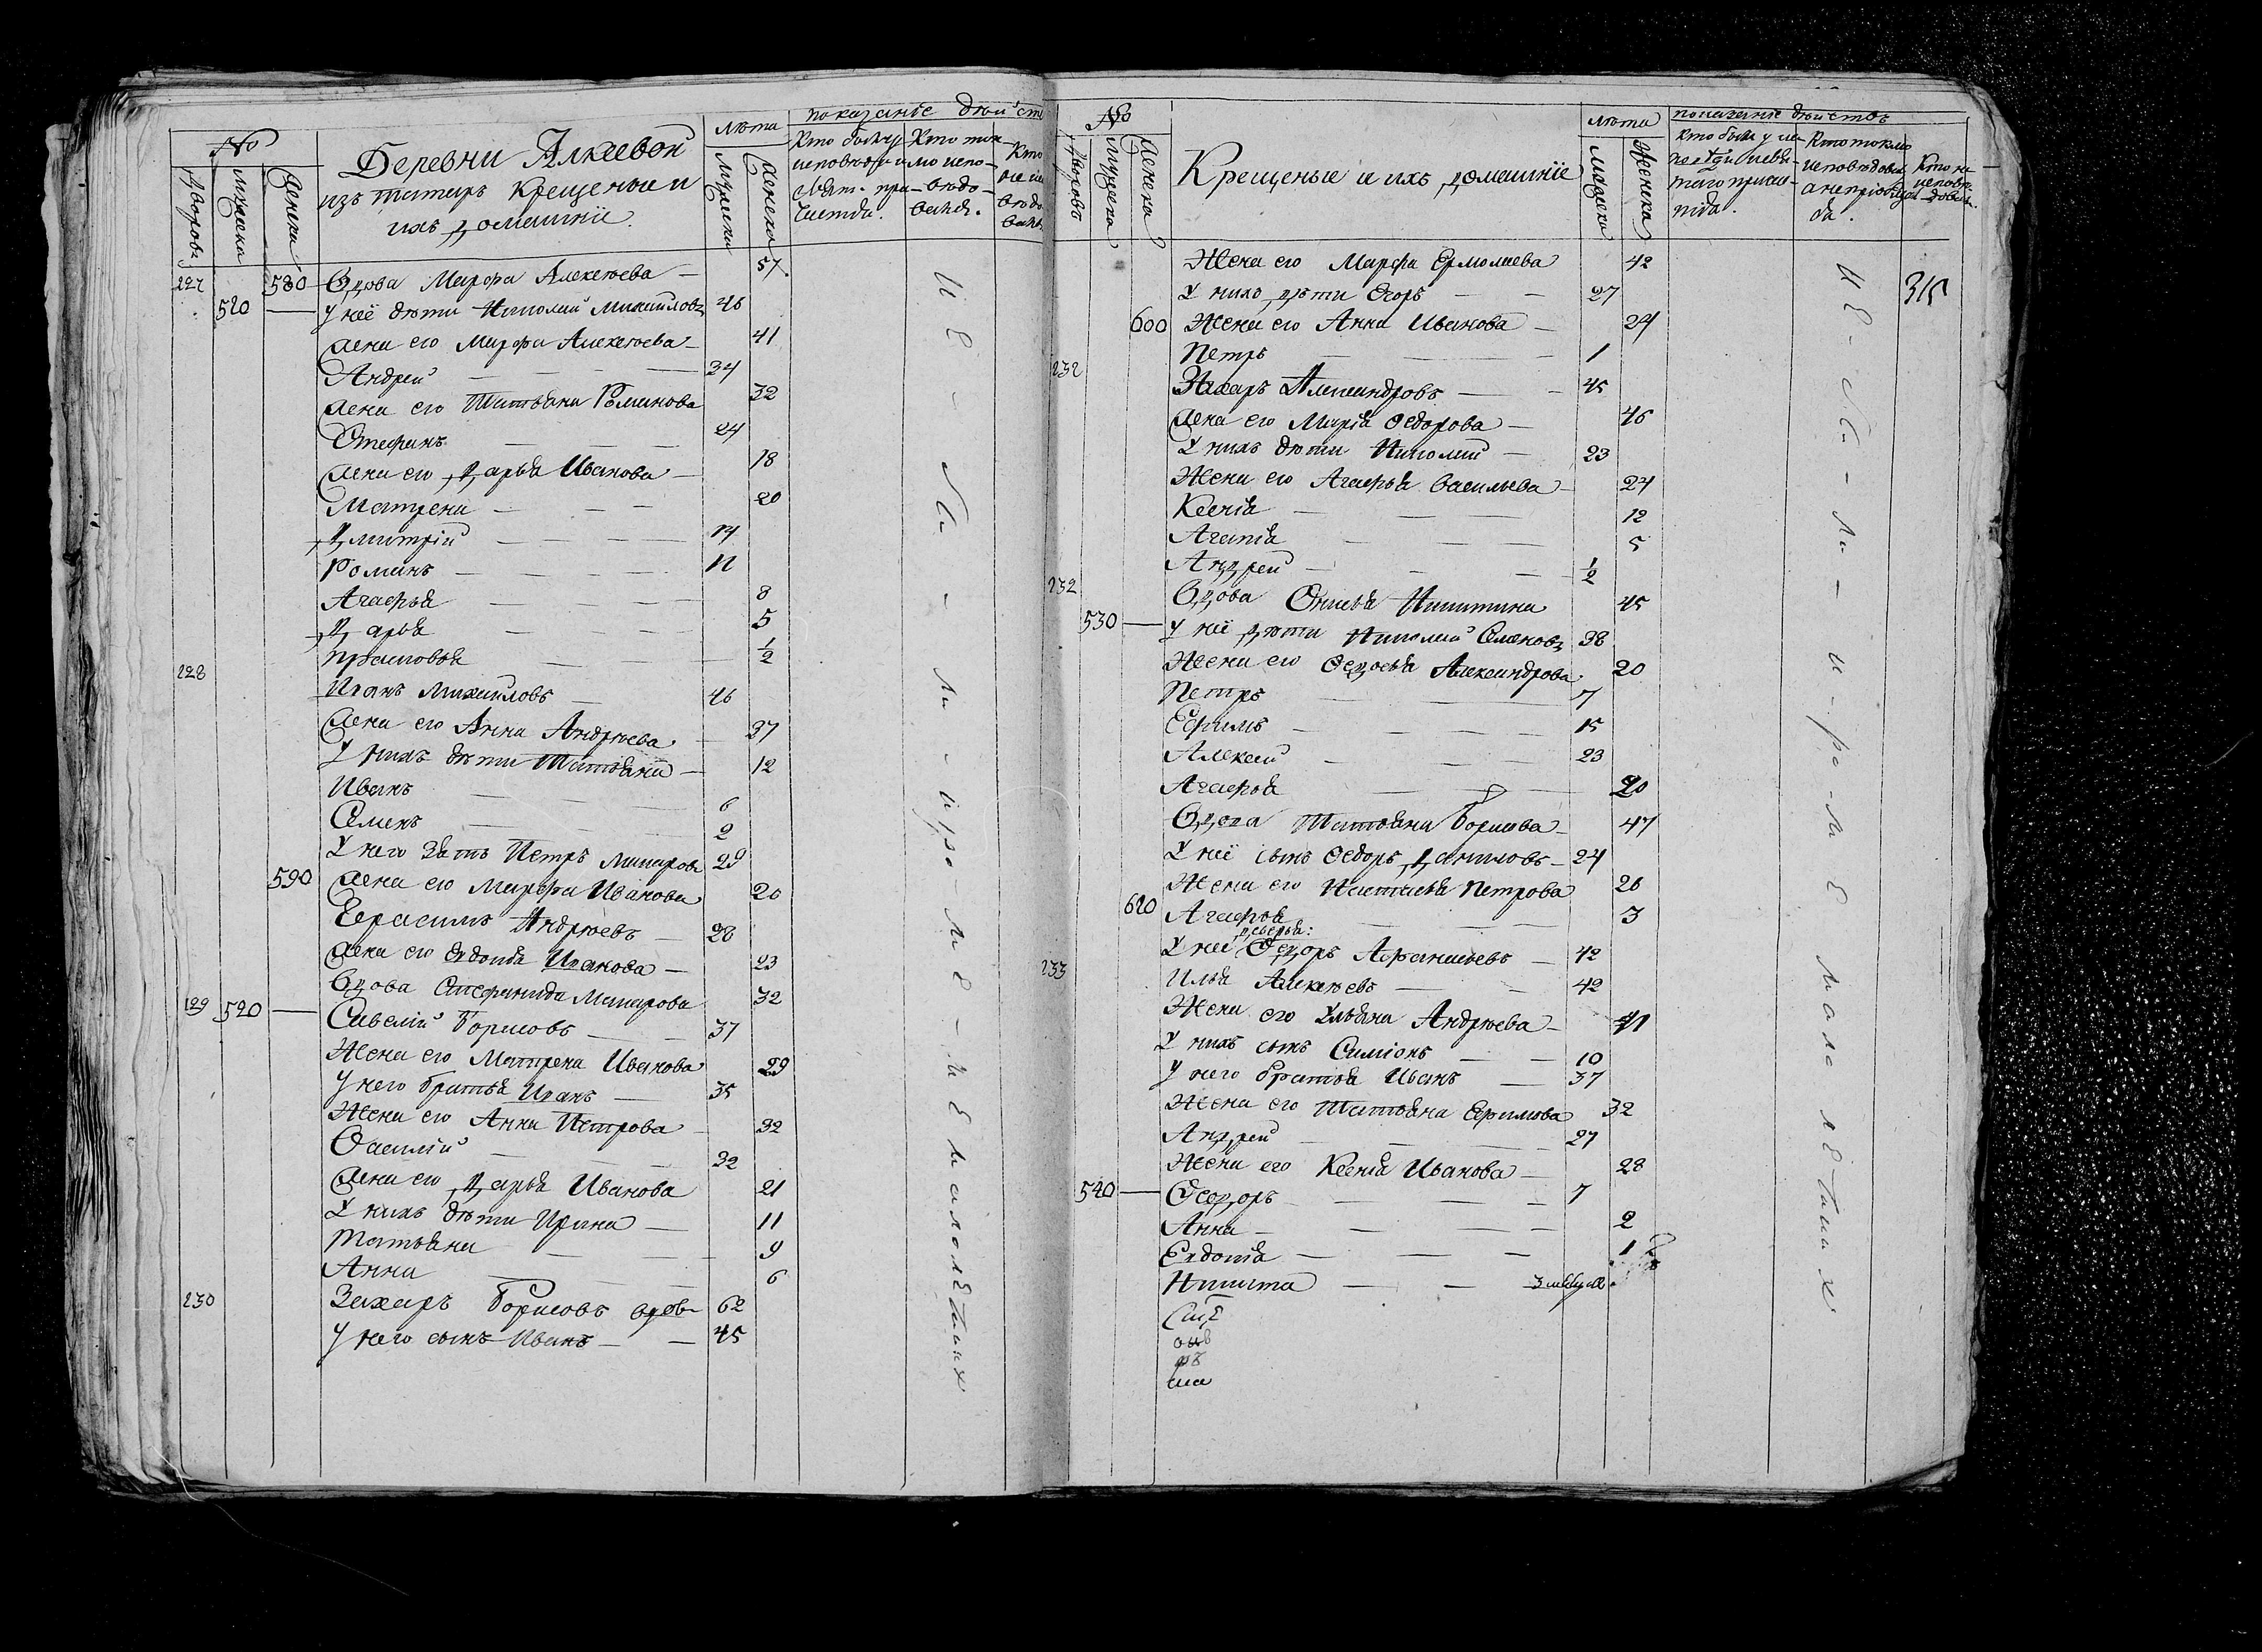 №
Дворовъ
Мужеска
Женска
Деревни Алкеевой
изъ татаръ крещеные и
ихъ домашніе.
лѣта
Мужеска
Женска
показаніе дѣйств
Кто былъ у
исповѣди и
Свят. при-
частія.
Кто ток-
мо испо-
вѣдо-
вался.
Кто
не ис
вѣдо
вался
227 580 Вдова Марфа Алексѣева — 57
510 — У неё дѣти Николай Михайловъ 46
Жена его Марфа Алексѣева — 41
Андрей — 34
Жена его Татьяна Романова 32
Стефанъ — 24
Жена его Дарья Иванова — 18
Матрена — 20
Дмитрій — 14
Романъ — 11
Агафья — 8
Дарья — 5
Прасковья — ½
228 Иванъ Михайловъ — 46
Жена его Анна Андрѣева — 37
У нихъ дѣти Татьяна — 12
Иванъ — 6
Семенъ — 2
У него зять Петръ Макаровъ 29
590 Жена его Марфа Иванова 20
Герасимъ Андрѣевъ — 28
Жена его Евдокія Иванова — 23
Вдова Стефанида Макарова 32
129 520 — Савелій Борисовъ — 37
Жена его Матрена Иванова 29
У него братья Иванъ — 35
Жена его Анна Петрова — 32
Василій — 32
Жена его Дарья Иванова 21
У нихъ дѣти Ирина — 11
Татьяна — 9
Анна — 6
230 Захаръ Борисовъ вдовъ 62
У него сынъ Иванъ — 45
не были и про ме не малолетних
№
Дворовъ
Мужеска
Женска
Крещеные и ихъ домашніе
лѣта
Мужеска
Женска
показаніе дѣйствъ
Кто былъ у ис-
повѣди и свя-
таго прича-
стія.
Кто токмо
исповѣдовал
а не пріобщал
ся.
Кто не
исповѣ-
довал.
Жена его Марфа Ермолаева 42
У нихъ дѣти Егоръ — 27
315
600 Жена его Анна Иванова — 24
Петръ — 1
232 Захаръ Александровъ — 45
Жена его Марія Федорова — 46
У нихъ дѣти Николай — 23
Жена его Агафья Васильева — 24
Ксенія — 12
Агапія — 5
Андрей — ½
232 Вдова Никитина 45
530 — У неё дѣти Николай Семеновъ 38
Жена его Федосья Александрова 20
Петръ — 7
Ефимъ — 15
Алексей — 23
Агафья — 20
Вдова Татьяна Борисова — 47
У неё сынъ Федоръ Даниловъ — 24
Жена его Настасья Петрова 26
610 Агафья — 3
У неё деверья: Федоръ Афанасьевъ — 42
233 Илья Алексѣевъ — 42
Жена его Ульяна Андрѣева — 41
У нихъ сынъ Симіонъ — 10
У него братья Иванъ — 37
Жена его Татьяна Ефимова 32
Андрей — 27
Жена его Ксенія Иванова — 28
540 — Феодоръ — 7
Анна — 2
Евдокія — 1
Никита —